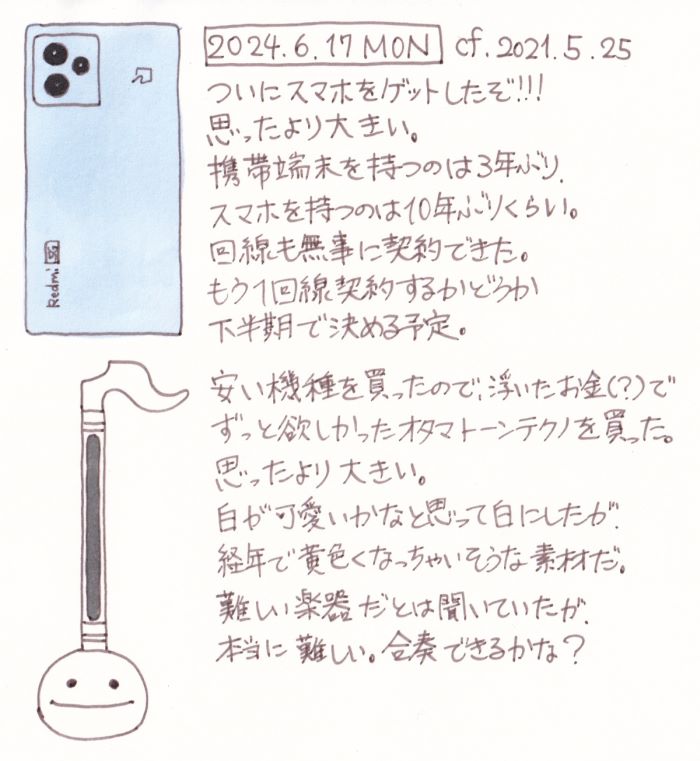 2024.6.17 MON cf. 2021.5.25
ついにスマホをゲットしたぞ!!!
思ったより大きい。
携帯端末を持つのは3年ぶり、
スマホを持つのは10年ぶりくらい。
回線も無事に契約できた。
もう1回線契約するかどうか
下半期で決める予定。
Redmi 5G
安い機種を買ったので、浮いたお金(?)で
ずっと欲しかったオタマトーンテクノを買った。
思ったより大きい。
白が可愛いかなと思って白にしたが、
経年で黄色くなっちゃいそうな素材だ。
難しい楽器だとは聞いていたが、
本当に難しい。合奏できるかな?